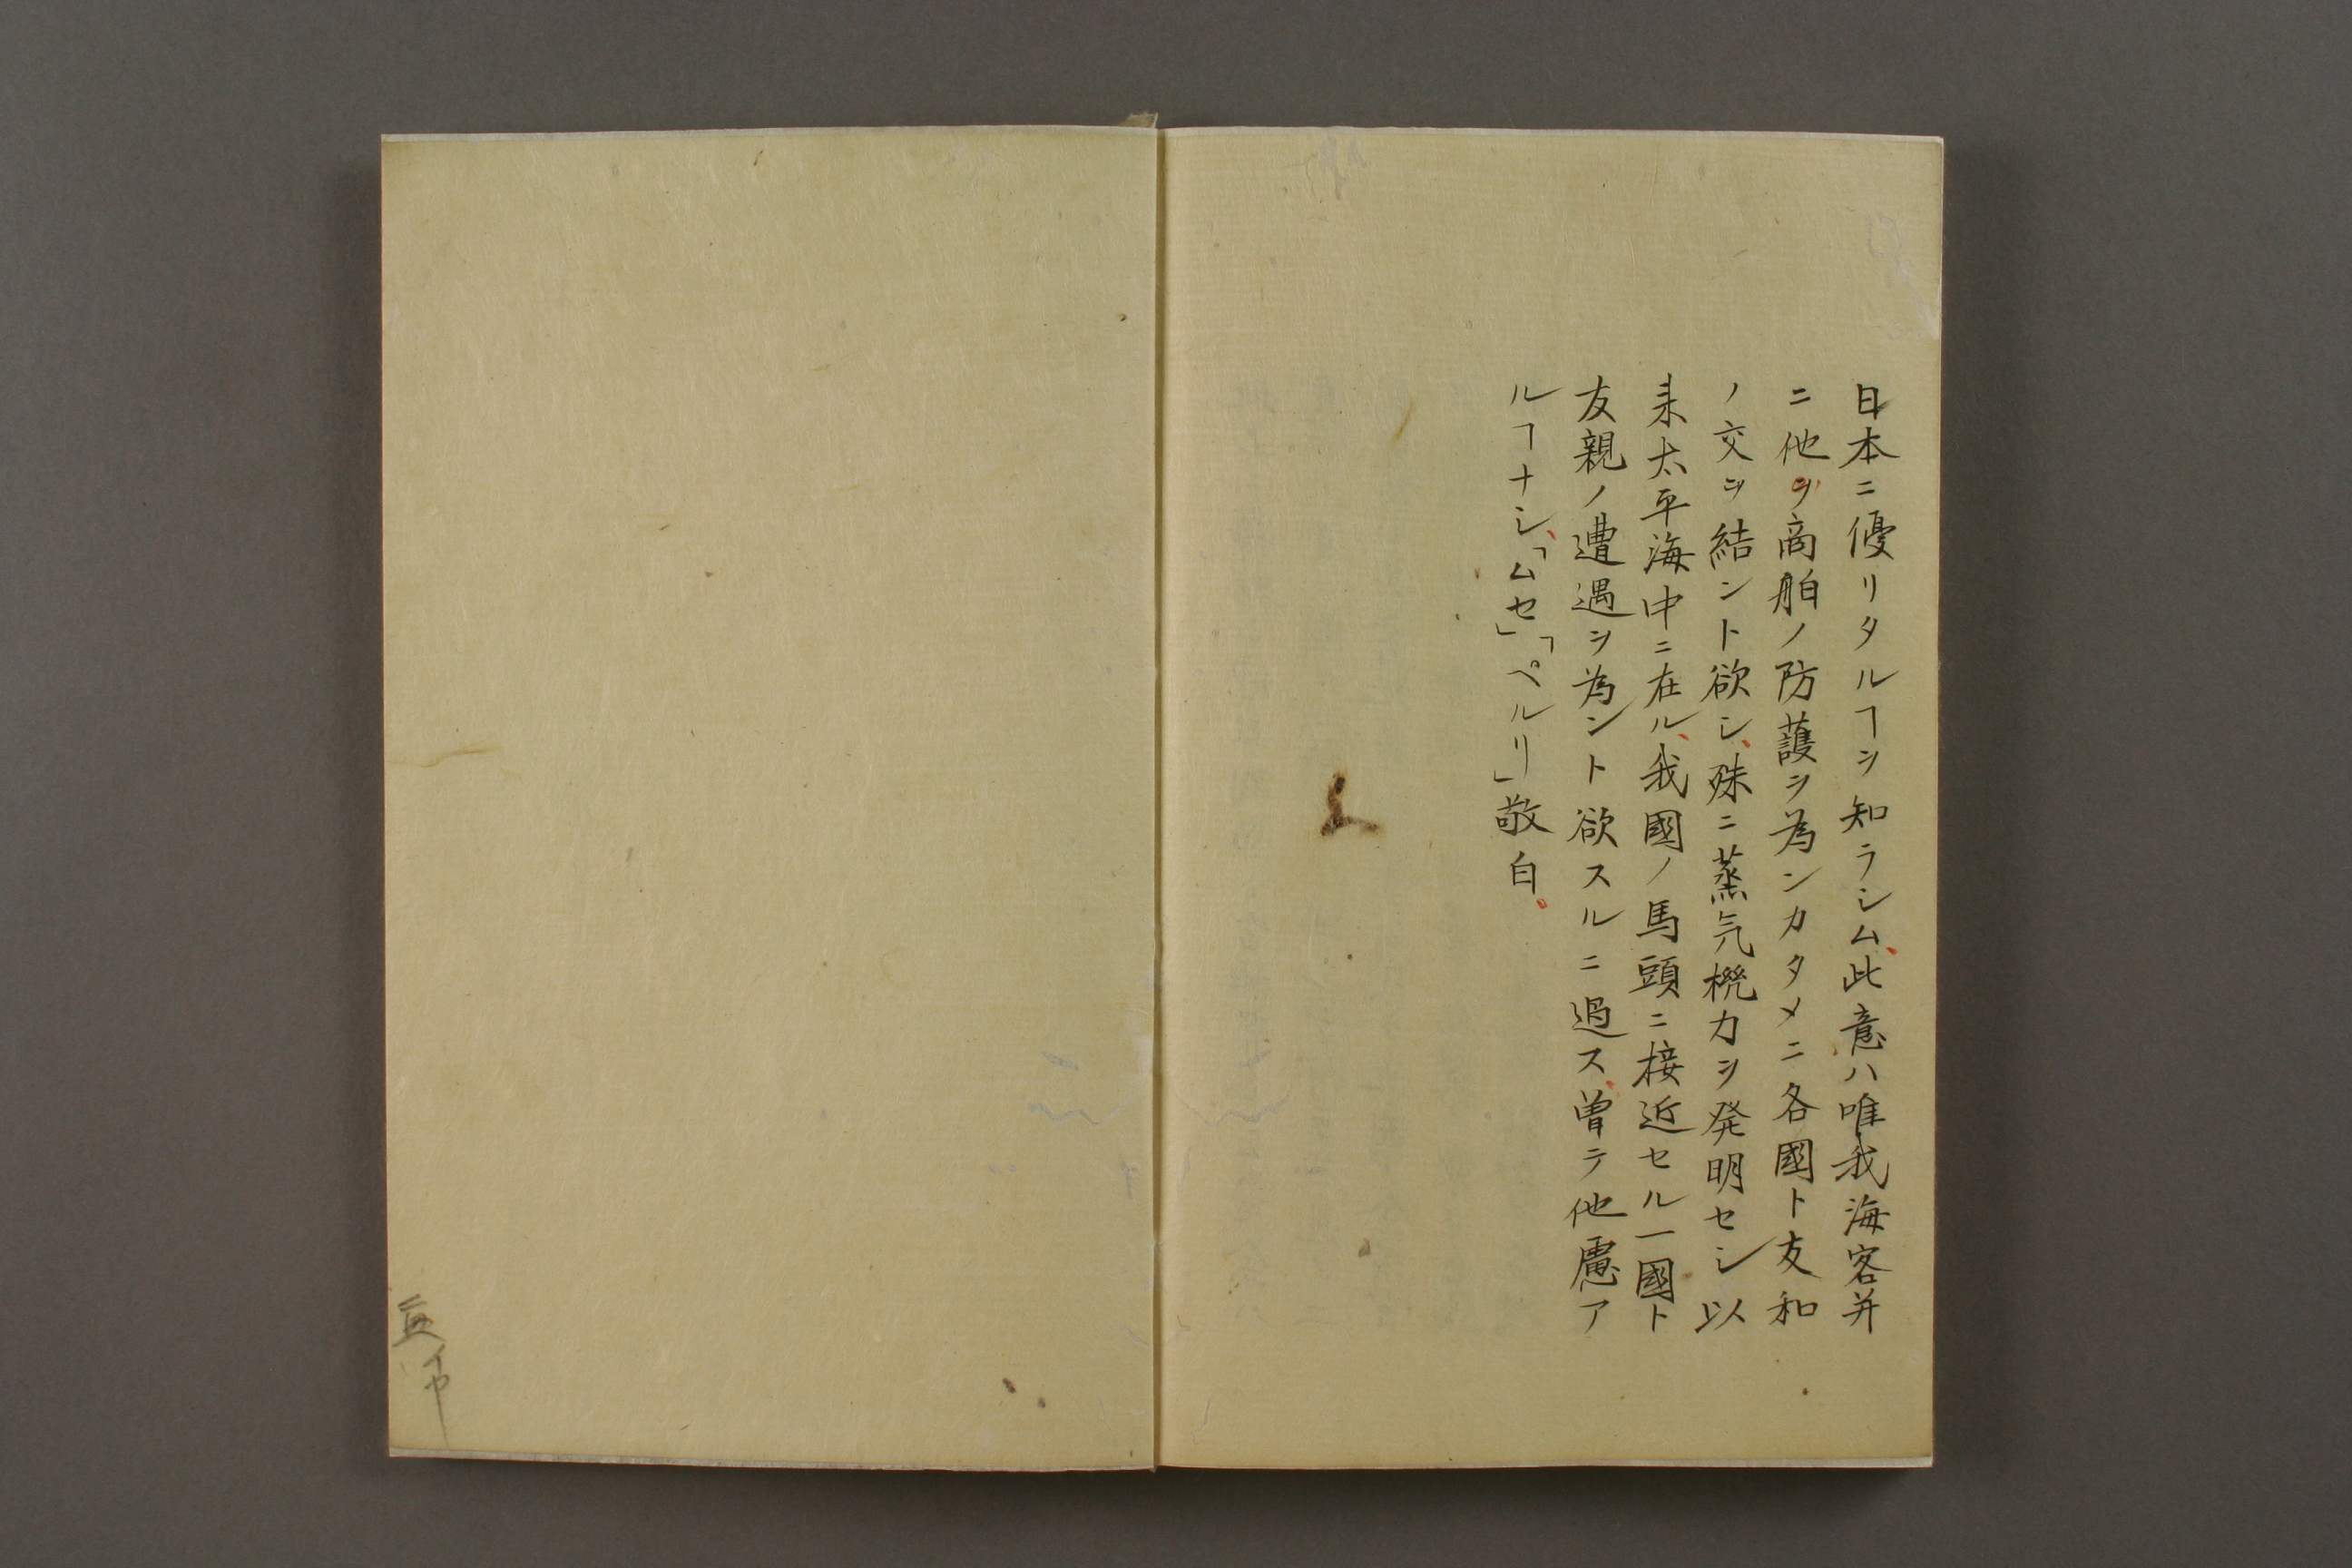 日本ニ優リタルヿヲ知ラシム、此意ハ唯我海客并
ニ他ヲ商舶ノ防護ヲ為ンカタメニ各國ト友和
ノ交ヲ結ント欲シ、殊ニ蒸気機力ヲ発明セシ以
来太平海中ニ在ル、我國ノ馬頭ニ接近セル一國ト
友親ノ遭遇ヲ為ント欲スルニ過ス、曽テ他慮ア
ルヿナシ、「ムセ」「ペルリ」敬白。